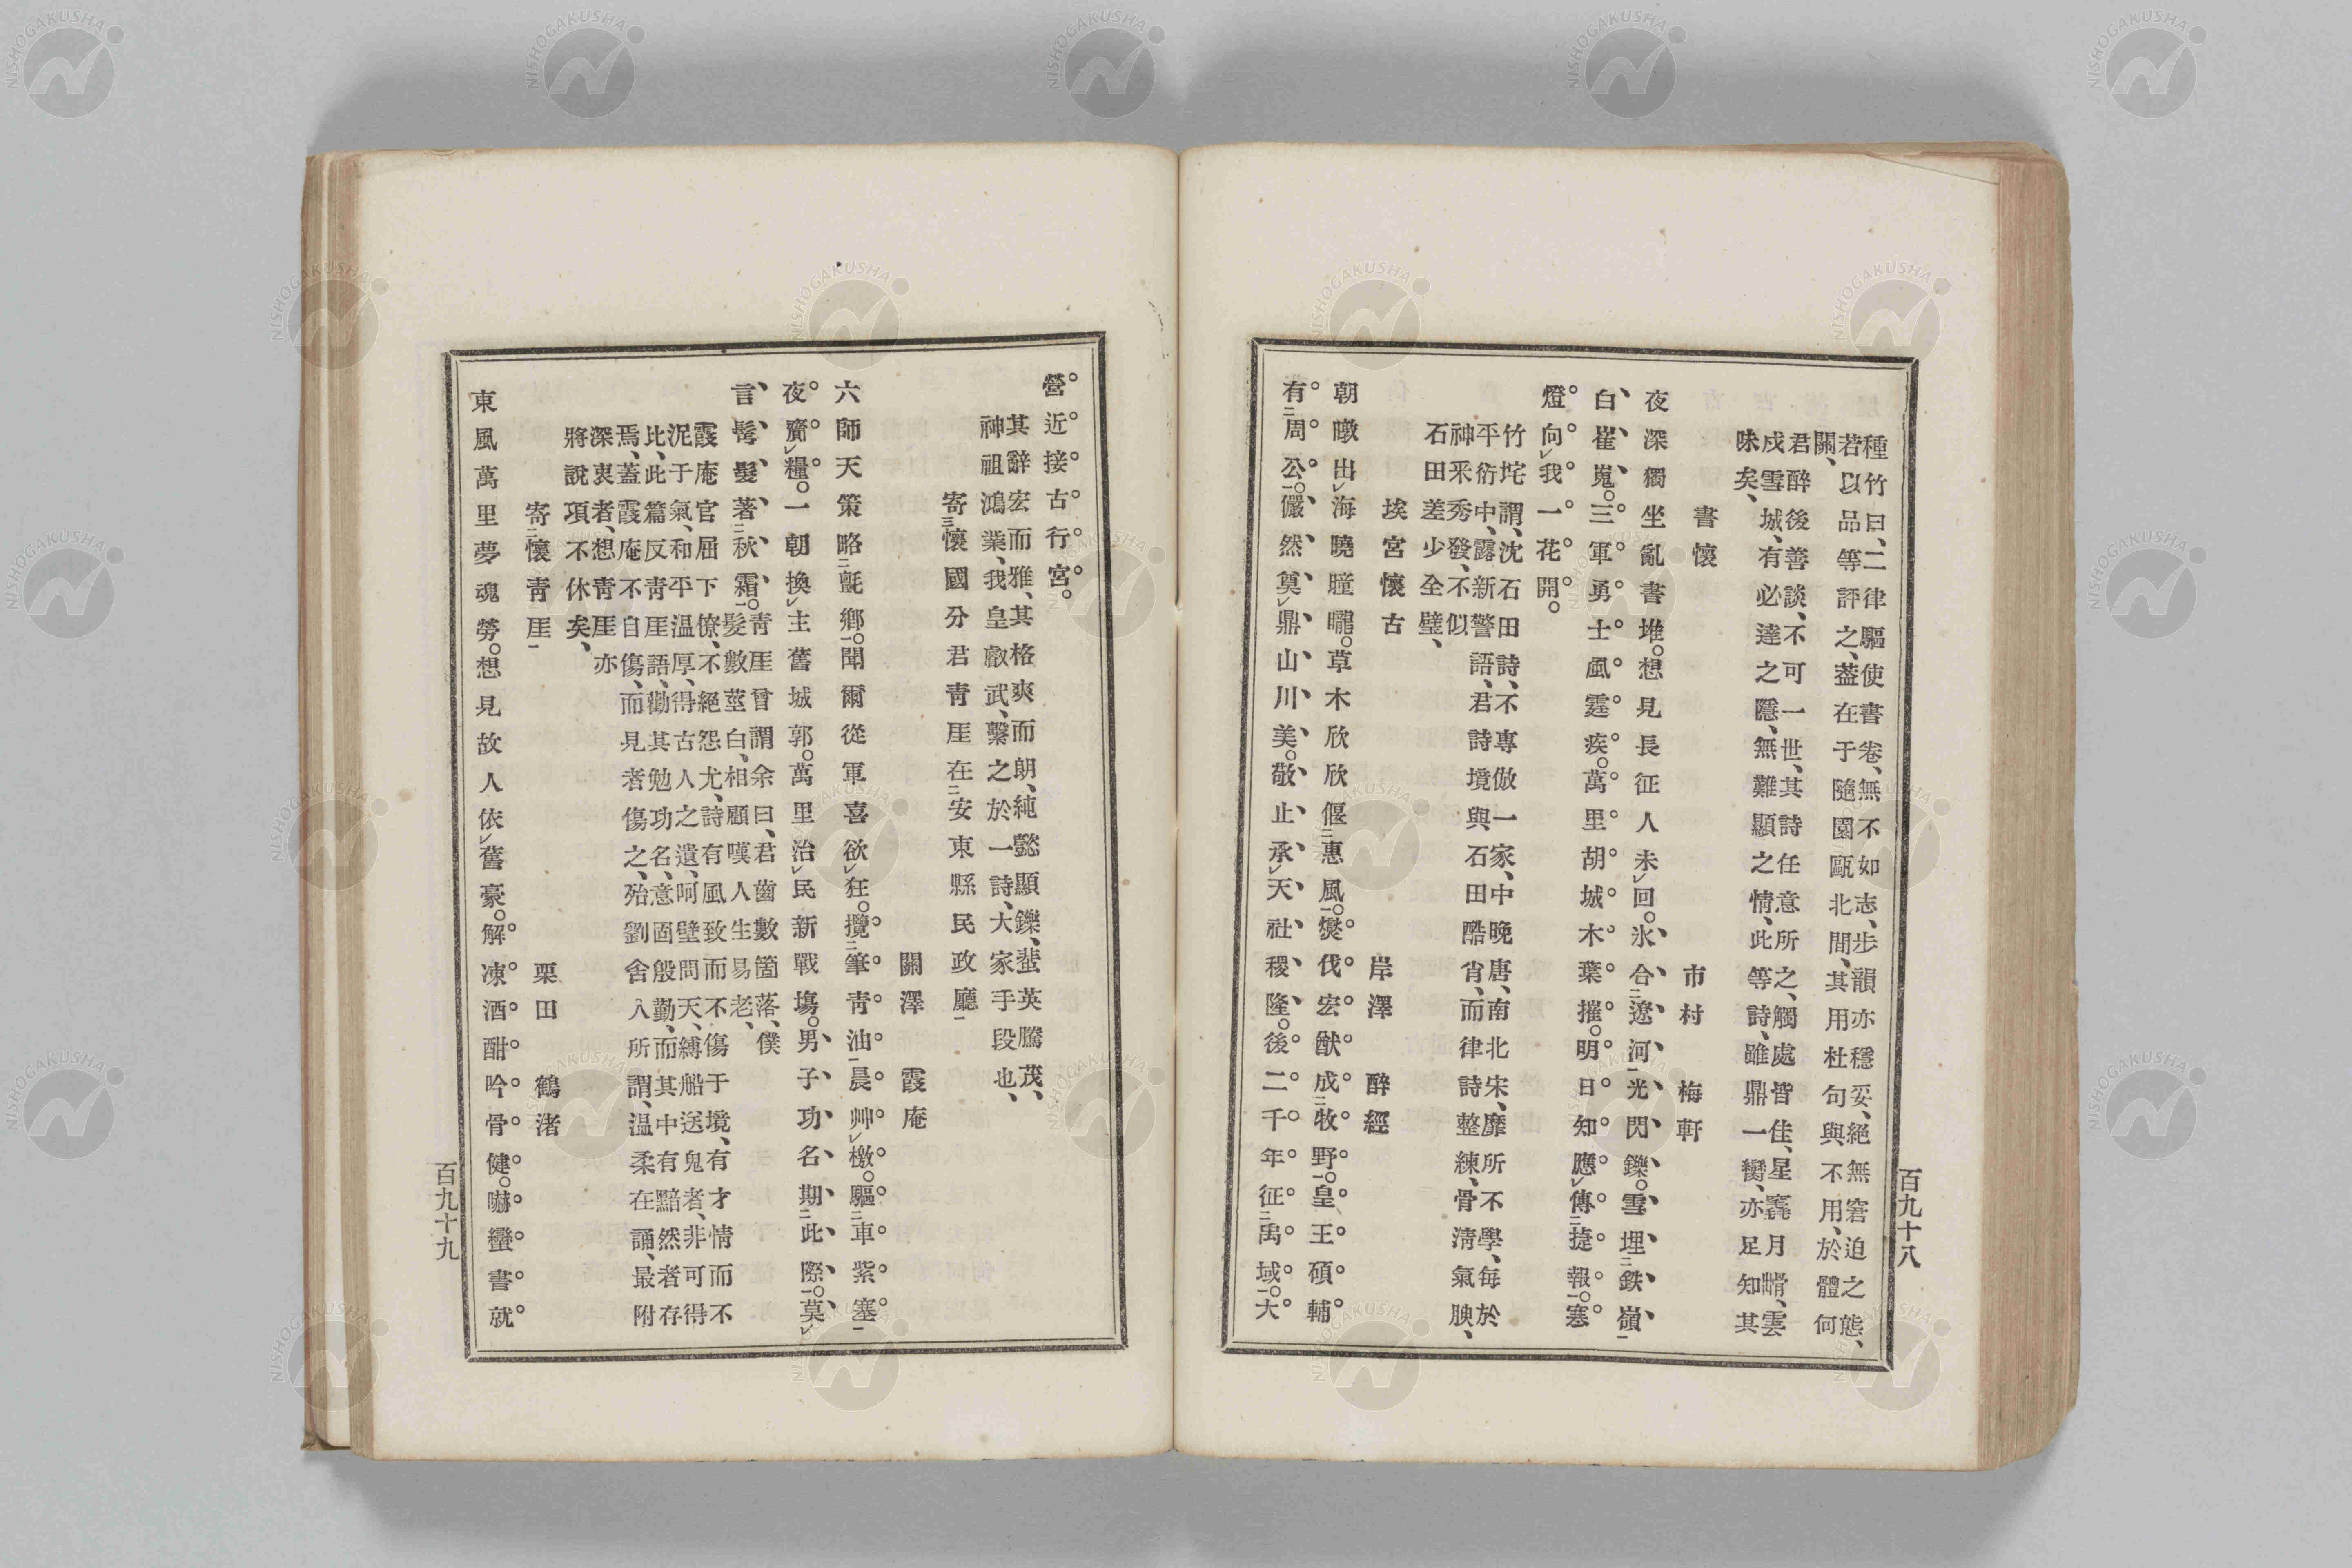 種竹曰、二律驅使書卷、無不如志、步韻亦穩妥、絕無窘迫之態、
若以品等評之、葢在于隨園甌北間、其用杜句與不用、於體何
關、
君醉後善談、不可一世、其詩任意所之、觸處皆佳、星鬟月幘、雲
戍雪城、有必達之隱、無難顯之情、此等詩、雖鼎一臠、亦足知其
味矣、
書懷 市村 梅軒
夜深獨坐亂書堆。想見長征人未㆑回。氷合㆓遼河㆒光閃鑠。雪埋㆓鉄嶺㆒
白崔嵬。三軍勇士風霆疾。萬里胡城木葉摧。明日知應㆑傳㆓捷報㆒。塞
燈向㆑我一花開。
竹坨謂、沈石田詩、不專倣一家、中晚唐、南北宋、靡所不學、每於
平衍中、露新警語、君詩境與石田酷肖、而律詩整練、骨淸氣腴、
神釆秀發、不似
石田差少全璧、
埃宮懷古 岸澤 醉經
朝暾出㆑海曉瞳曨。草木欣欣偃㆓惠風㆒。燓伐宏猷成㆓牧野㆒。皇王碩輔
有㆓周公㆒。儼然奠㆑鼎山川美。敬止承㆑天社稷隆。後二千年征㆓禹域㆒。大
百九十八
營近接古行宮。
其辭宏而雅、其格爽而朗、純懿顯鑠、蜚英騰茂、
神祖鴻業、我皇叡武、繫之於一詩、大家手段也、
寄㆔懷國分君靑厓在㆓安東縣民政廳㆒
關澤 霞庵
六師天策略㆓氈鄉㆒。聞爾從軍喜欲㆑狂。攬㆓筆靑油㆒晨艸㆑檄。驅㆓車紫塞㆒
夜齎㆑糧。一朝換㆑主舊城郭。萬里治㆑民新戰塲。男子功名期㆓此際㆒。莫㆑
言髩髮著㆓秋霜㆒。靑厓曾謂余曰、君齒數箇落、僕
髮數莖白、相顧嘆人生易老、
霞庵官屈下僚、不絕怨尤、詩有風致而不傷于境、有才情而不
泥于氣、和平温厚、得古人之遺、呵壁問天、縛船送鬼者、非可得
比、此篇反靑厓語、勸其勉功名、意固殷勤、而其中有黯然者存
焉、蓋霞庵不自傷、而見者傷之、殆劉舍人所謂、温柔在誦、最附
深衷者、想靑厓亦
將說項不休矣、
寄㆓懷靑厓㆒ 栗田 鶴渚
東風萬里夢魂勞。想見故人依㆑舊豪。解凍酒酣吟骨健。嚇蠻書就
百九十九